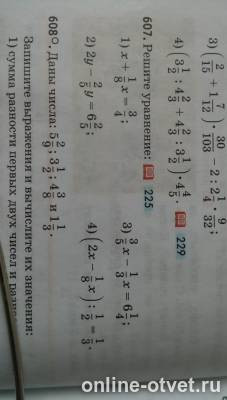 3) (2/15 + 1 7/12) · 30/103 − 2 : 2 1/4 · 9/32;
4) (3 1/2 : 4 2/3 + 4 2/3 : 3 1/2) · 4 4/5. 229
607. Решите уравнение: 225
1) x + 1/8 x = 3/4; 3) 3/5 x − 1/3 x = 6 1/4;
2) 2y − 2/5 y = 6 2/5; 4) (2x − 1/8 x) : 1/2 = 1/3.
608. Даны числа: 5 2/9; 3 1/2; 4 3/8 и 1 1/3.
Запишите выражения и вычислите их значения:
1) сумма разности первых двух чисел и
online-otvet.ru